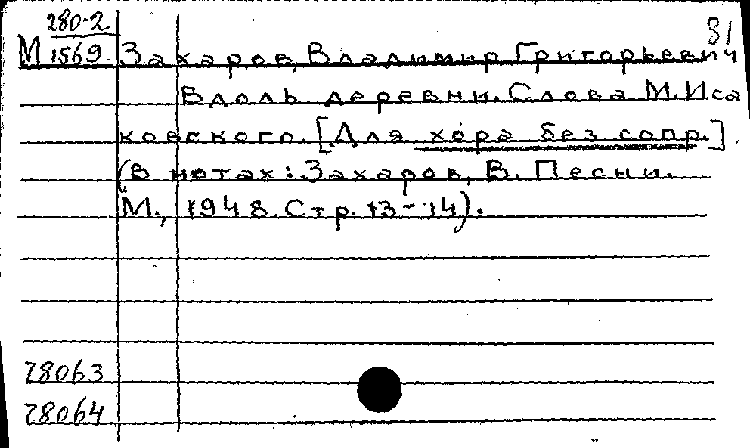 280-2
31
М 1569. Захаров, Владимир Григорьевич
Вдоль деревни. Слова М. Иса
ковского. [Для хора без сопр.]
(в нотах: Захаров, В. Песни.
М., 1948. Стр. 13-14).
28063
28064